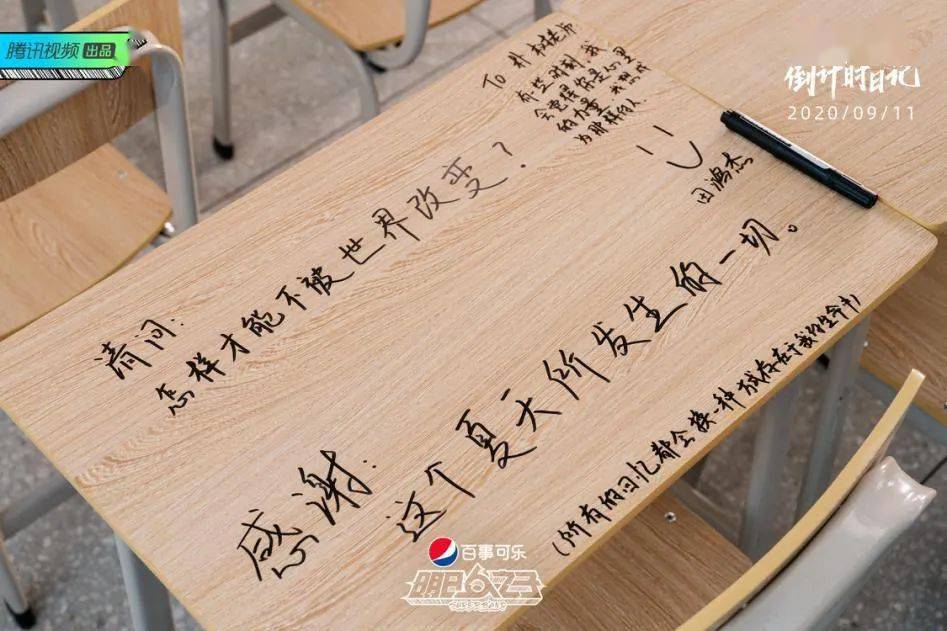 腾讯视频 出品
倒计时日记
2020/09/11
To 朴树老师
有些时刻,我
会觉得你是心里
的力量 我想成
为那样的人
田鸿杰
请问:
怎样才能不被世界改变?
感谢:
这个夏天所发生的一切。
(所有的回忆都会换一种方式存在于我的生命中)
百事可乐
明日之子